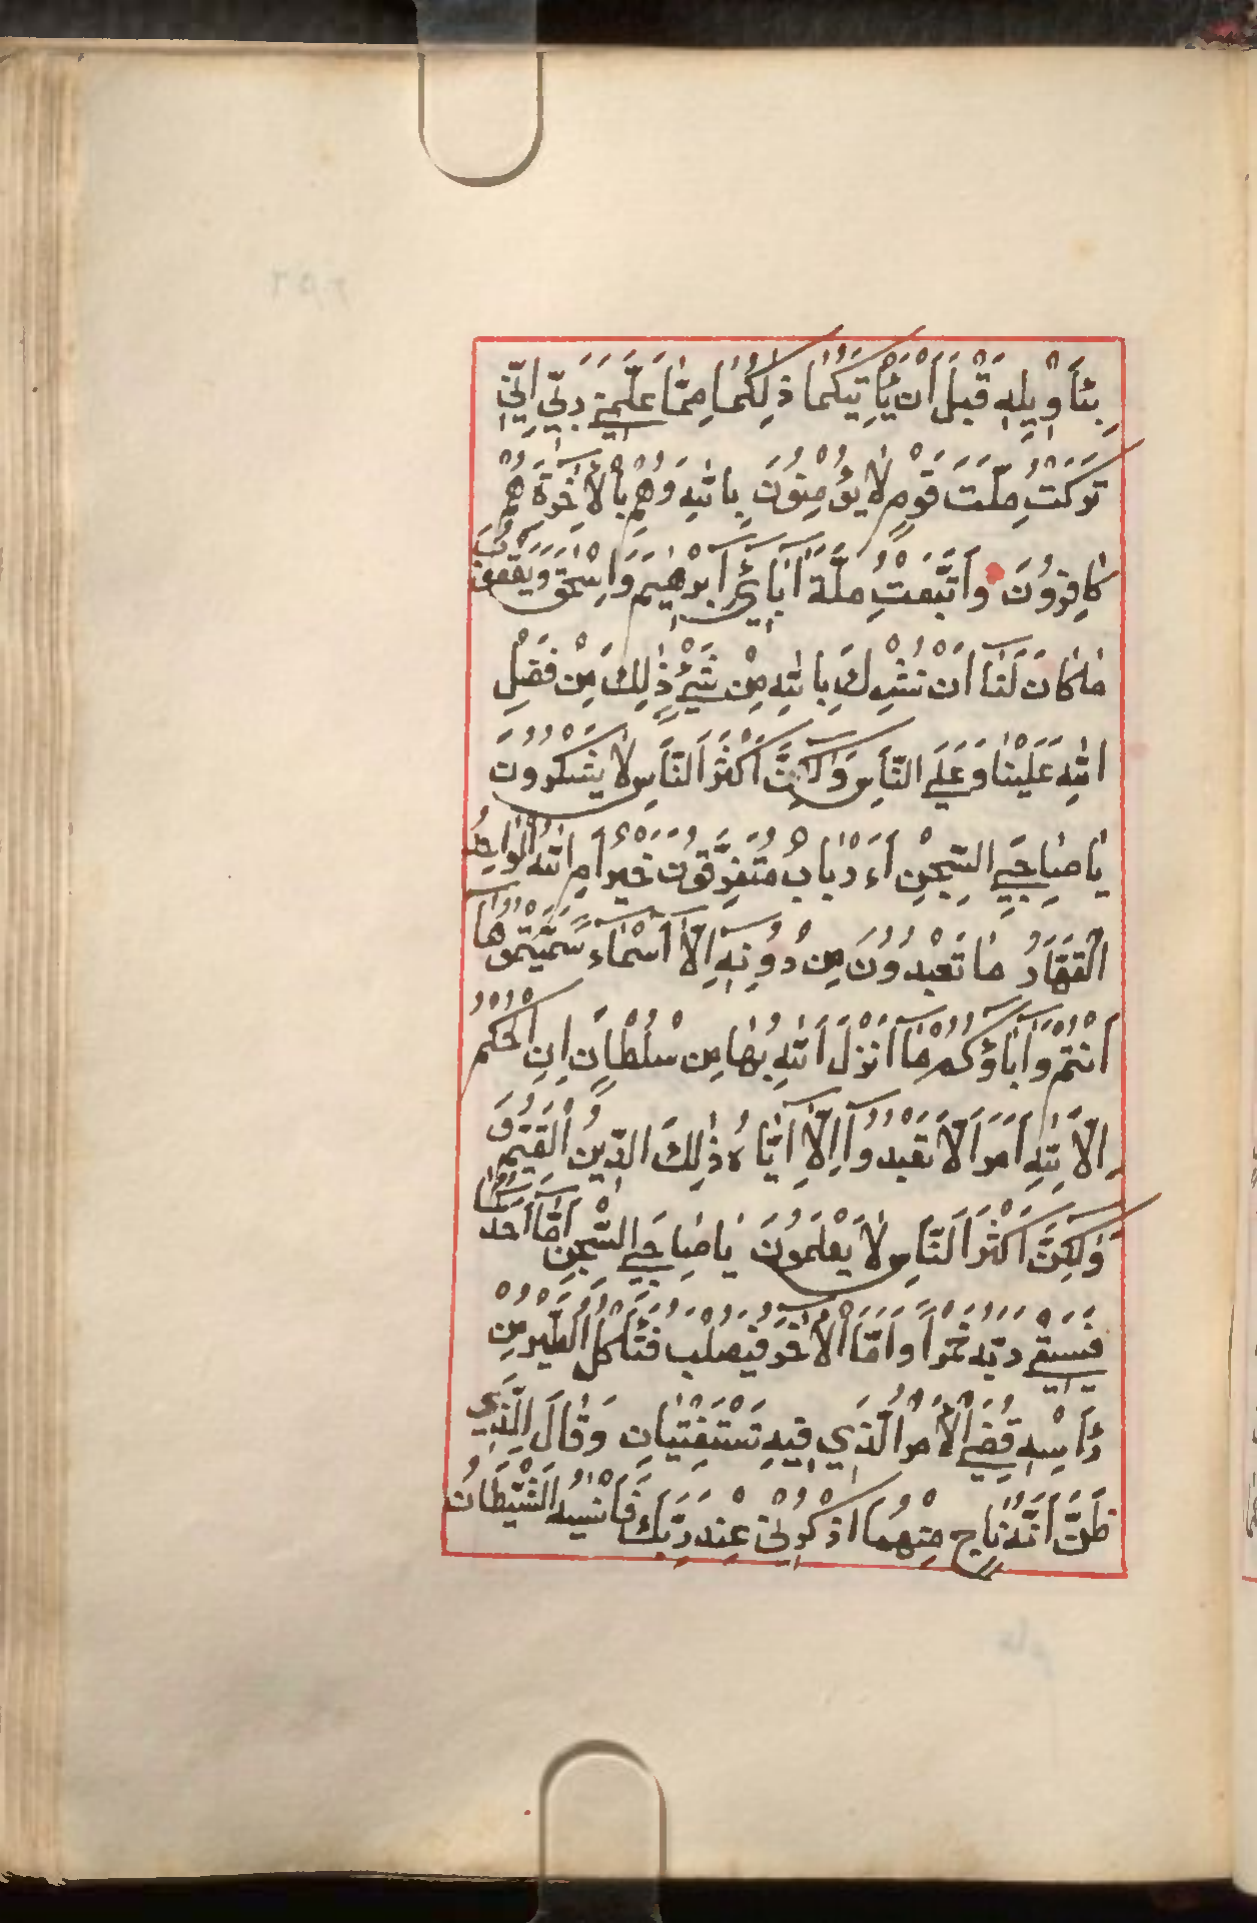 بِتَأْوِيلِهِ قَبْلَ أَنْ يَأْتِيَكُمَا ذٰلِكُمَا مِمَّا عَلَّمَنِي رَبِّي اِنِّي
تَرَكْتُ مِلَّتَ قَوْمٍ لَا يُؤْمِنُونَ بِاللّٰهِ وَهُمْ بِالْاٰخِرَةِ هُمْ
كَافِرُونَ وَاتَّبَعْتُ مِلَّةَ اٰبَائِي اِبْرٰهِيمَ وَاِسْحٰقَ وَيَعْقُوبَ
مَا كَانَ لَنَا اَنْ نُشْرِكَ بِاللّٰهِ مِنْ شَيْءٍ ذٰلِكَ مِنْ فَضْلِ
اللّٰهِ عَلَيْنَا وَعَلَى النَّاسِ وَلٰكِنَّ اَكْثَرَ النَّاسِ لَا يَشْكُرُونَ
يَا صَاحِبَيِ السِّجْنِ ءَاَرْبَابٌ مُتَفَرِّقُونَ خَيْرٌ اَمِ اللّٰهُ الْوَاحِدُ
الْقَهَّارُ مَا تَعْبُدُونَ مِنْ دُونِهِ اِلَّا اَسْمَاءً سَمَّيْتُمُوهَا
اَنْتُمْ وَاٰبَاؤُكُمْ مَا اَنْزَلَ اللّٰهُ بِهَا مِنْ سُلْطَانٍ اِنِ الْحُكْمُ
اِلَّا لِلّٰهِ اَمَرَ اَلَّا تَعْبُدُوا اِلَّا اِيَّاهُ ذٰلِكَ الدِّينُ الْقَيِّمُ
وَلٰكِنَّ اَكْثَرَ النَّاسِ لَا يَعْلَمُونَ يَا صَاحِبَيِ السِّجْنِ اَمَّا اَحَدُكُمَا
فَيَسْقِي رَبَّهُ خَمْرًا وَاَمَّا الْاٰخَرُ فَيُصْلَبُ فَتَأْكُلُ الطَّيْرُ مِنْ
رَأْسِهِ قُضِيَ الْاَمْرُ الَّذِي فِيهِ تَسْتَفْتِيَانِ وَقَالَ لِلَّذِي
ظَنَّ اَنَّهُ نَاجٍ مِنْهُمَا اذْكُرْنِي عِنْدَ رَبِّكَ فَاَنْسٰيهُ الشَّيْطَانُ